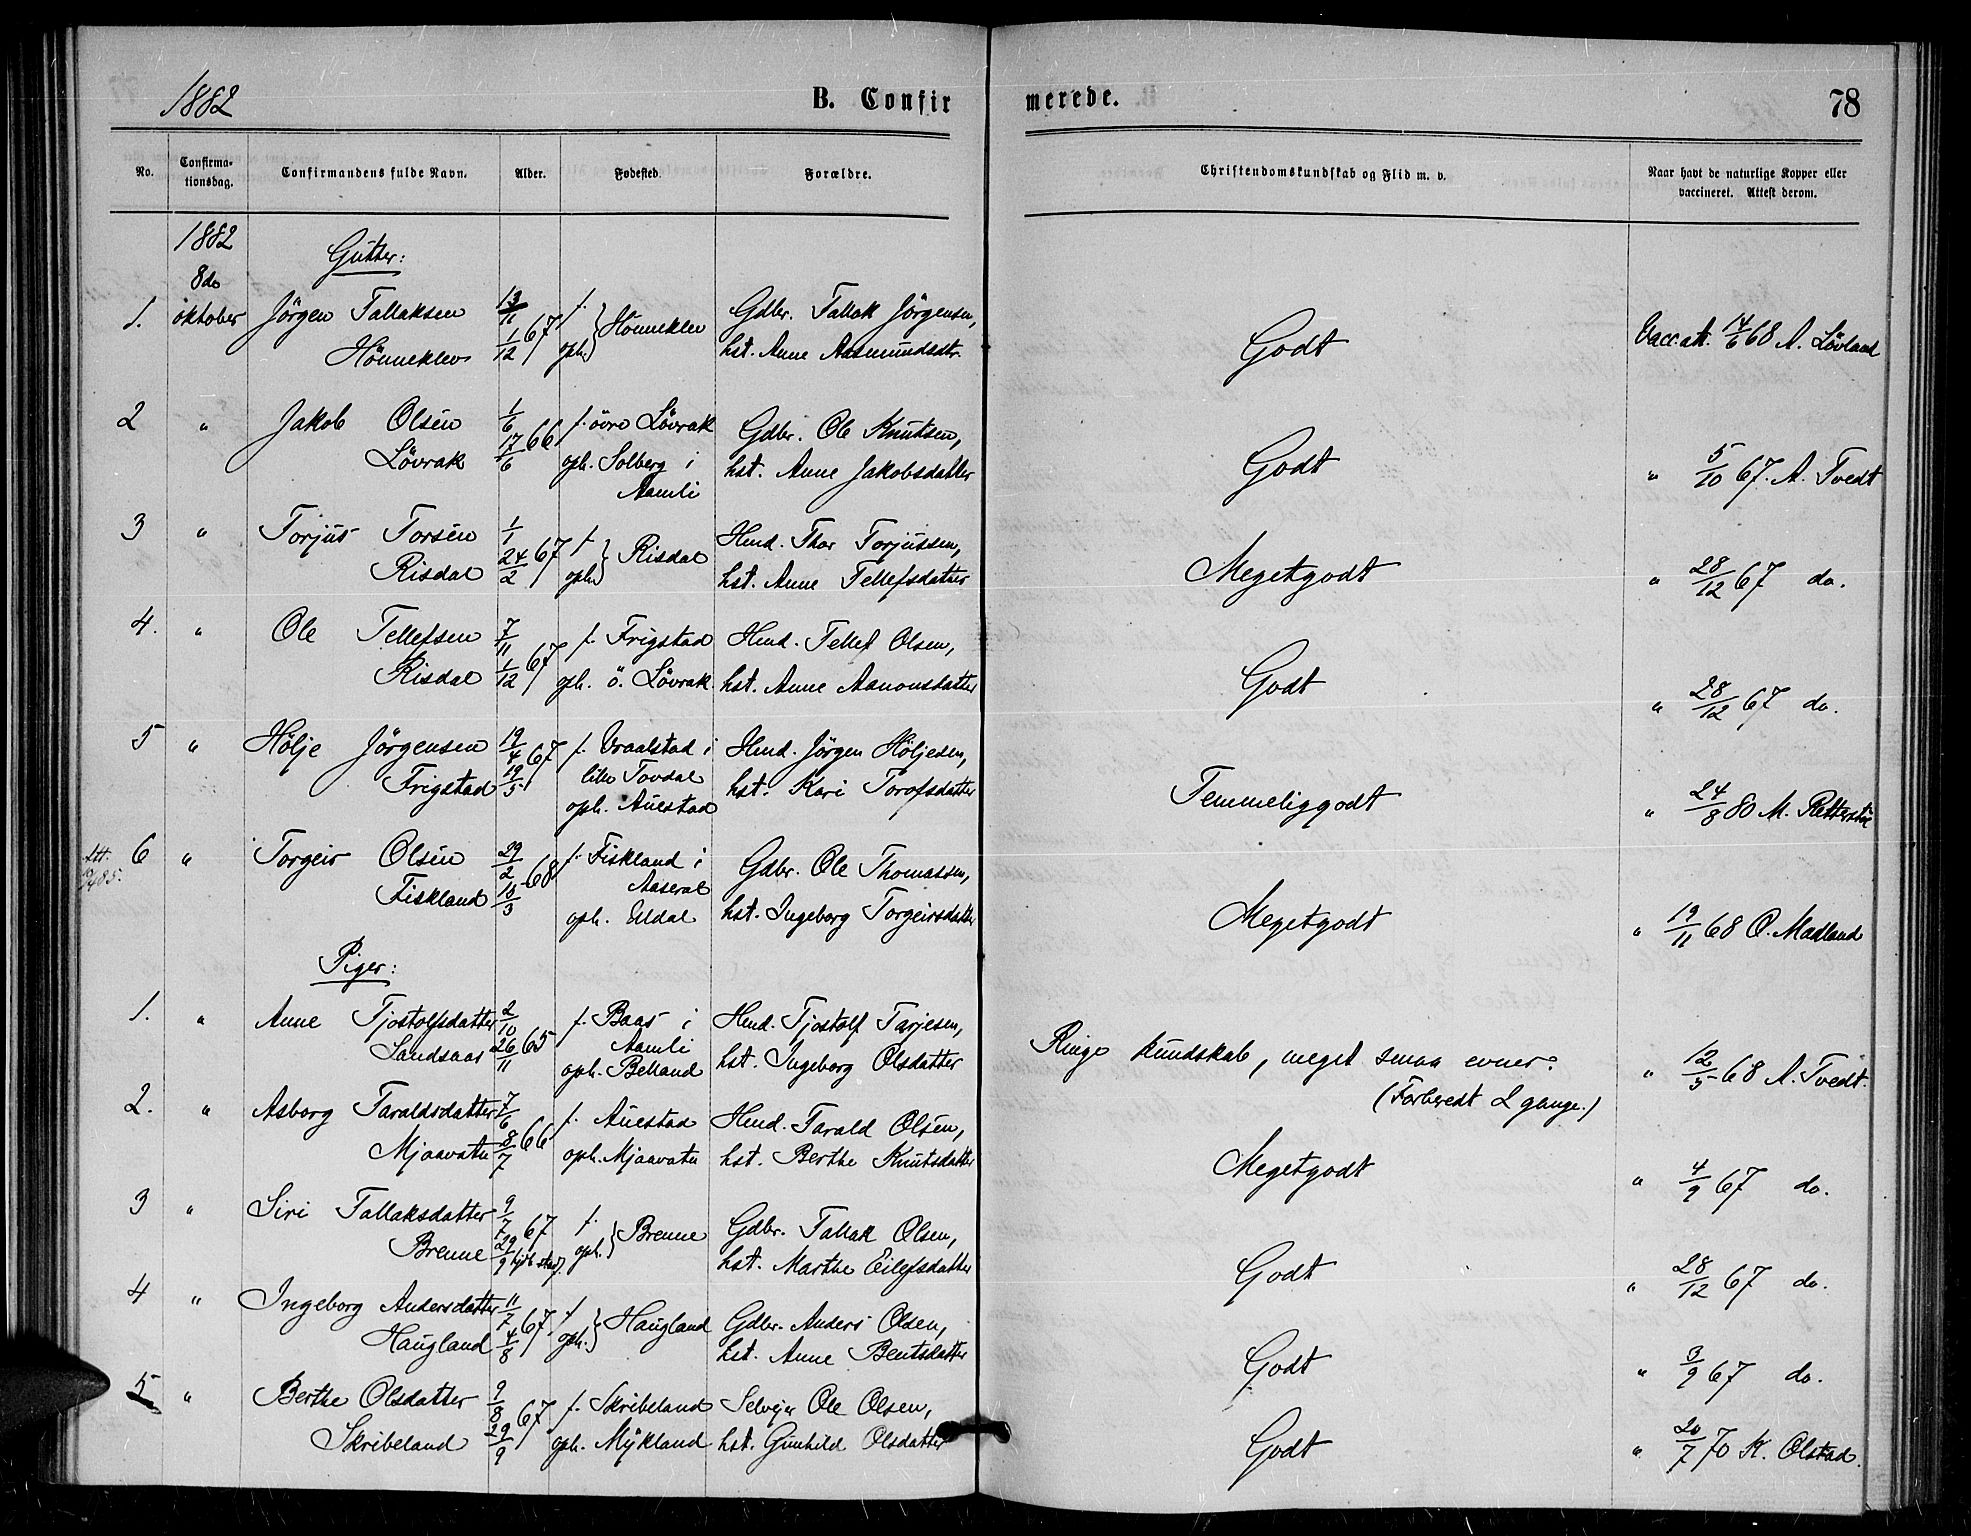 1882
B. Confir
merede.
78
No.
Confirma-
tionsdag.
Confirmandens fulde Navn.
Alder.
Fødested.
Forældre.
Christendomskundskab og Flid m. v.
Naar havt de naturlige Kopper eller
vaccineret. Attest derom.
1882
8de
oktober
Gutter:
1. Jörgen Tallaksen 13/11 f. Gdbr. Tallak Jörgensen,
Hönneklev 1/12 67 oph. } Hönneklev hst. Anne Aasmundsdtr.
Godt
Vacc. att. 14/6 68 A. Lövland
2 " Jakob Olsen 1/6 f. övre Lövrak Gdbr. Ole Knutsen,
Lövrak 17/6 66 oph. Solberg i hst. Anne Jakobsdatter
Aamli
Godt
" 5/10 67. A. Tvedt
3 " Torjus Torsen 1/1 f. Hmd. Thor Torjussen,
Risdal 24/2 67 oph. } Risdal hst. Anne Tellefsdatter
Megetgodt
" 28/12 67 do.
4. " Ole Tellefsen 7/11 f. Frigstad Hmd. Tellef Olsen,
Risdal 1/12 67 oph. ö. Lövrak hst. Anne Aanonsdatter
Godt
" 28/12 67 do.
5 " Hölje Jörgensen 19/4 67 f. Vraalstad i Hmd. Jörgen Höljesen,
Frigstad 19/5 lille Tovdal hst. Kari Torofsdatter
oph. Auestad
Temmeliggodt
" 24/8 80 M. Retterstöl
Att.
6 " Torgeir Olsen 29/2 68 f. Fiskland i Gdbr. Ole Thomassen,
Fiskland 15/3 Aaseral hst. Ingeborg Torgeirsdatter
oph. Uldal
Megetgodt
" 19/11 68 O. Madland
Piger:
1. " Anne Tjostolfsdatter 2/10 f. Baas i Hmd. Tjostolf Tarjesen,
Sandsaas 26/11 65 Aamli hst. Ingeborg Olsdatter
oph. Belland
Ringe kundskab, meget smaa evner.
(Forberedt 2 gange.)
" 12/5 68 A. Tvedt.
2. " Asborg Taraldsdatter 7/6 f. Auestad Hmd. Tarald Olsen,
Mjaavatn 8/7 66 oph. Mjaavatn hst. Berthe Knutsdatter
Megetgodt
" 4/9 67 do.
3 " Siri Tallaksdatter 9/7 67 f. Gdbr. Tallak Olsen,
Brenne 29/9 hjdb. stadf. oph. } Brenne hst. Marthe Eilefsdatter
Godt
" 28/12 67 do.
4 " Ingeborg Andersdatter 11/7 67 f. Gdbr. Anders Olsen,
Haugland 4/8 oph. } Haugland hst. Anne Bentsdatter
Godt
" 3/9 67 do.
5 " Berthe Olsdatter 9/8 67 f. Skribeland Selvejer Ole Olsen,
Skribeland 29/9 oph. Mykland hst. Gunhild Olsdatter
Godt
" 20/7 70 K. Olstad.